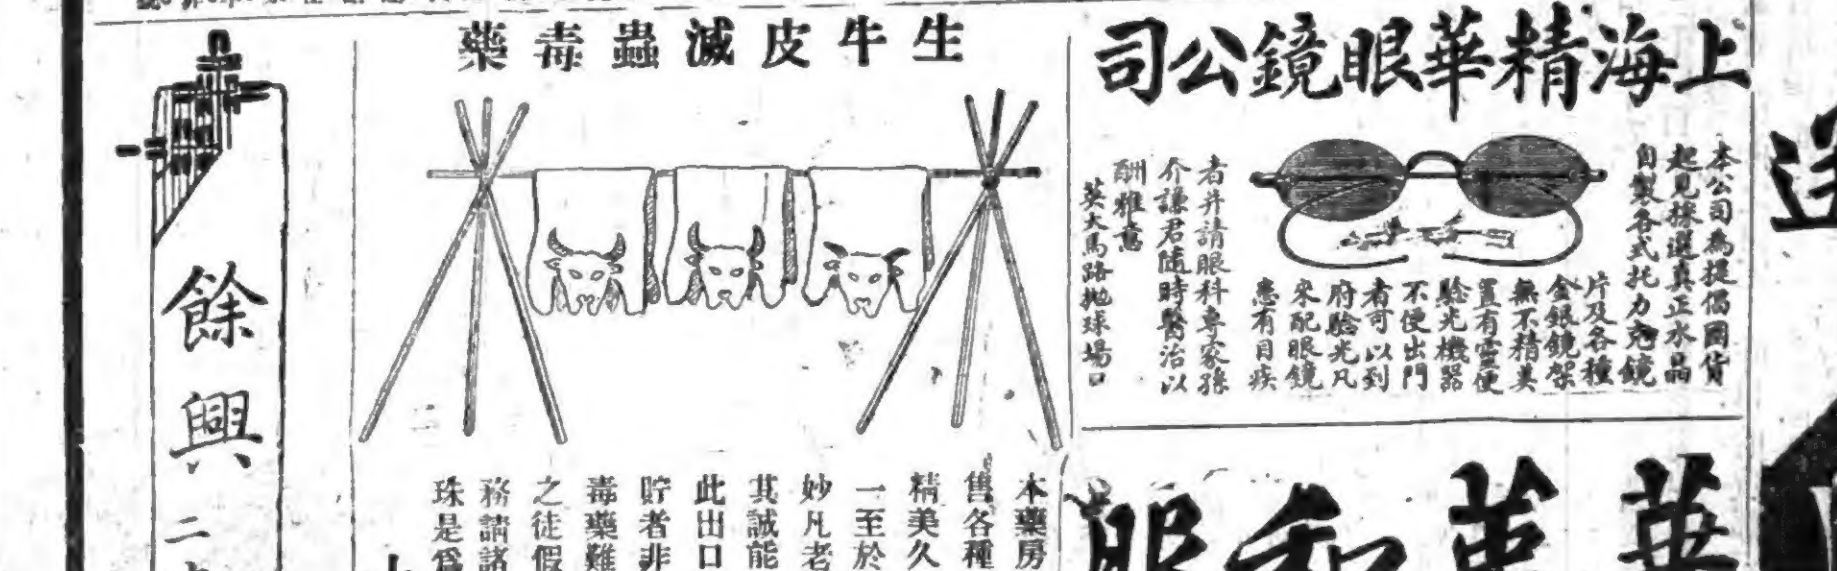 上海精華眼鏡公司
本公司為提倡國貨
起見採選真正水晶
自製各式托力克鏡
片及各種
金銀鏡架
無不精美
置有靈便
驗光機器
不便出門
者可以到
府驗光凡
來配眼鏡
患有目疾
者并請眼科專家孫
介謙君隨時醫治以
酬雅意
英大馬路拋球場口
生牛皮滅蟲毒藥
本藥房
售各種
精美久
一至於
妙凡老
其誠能
此出口
貯者非
毒藥難
之徒假
務請諸
珠是爲
餘興
二